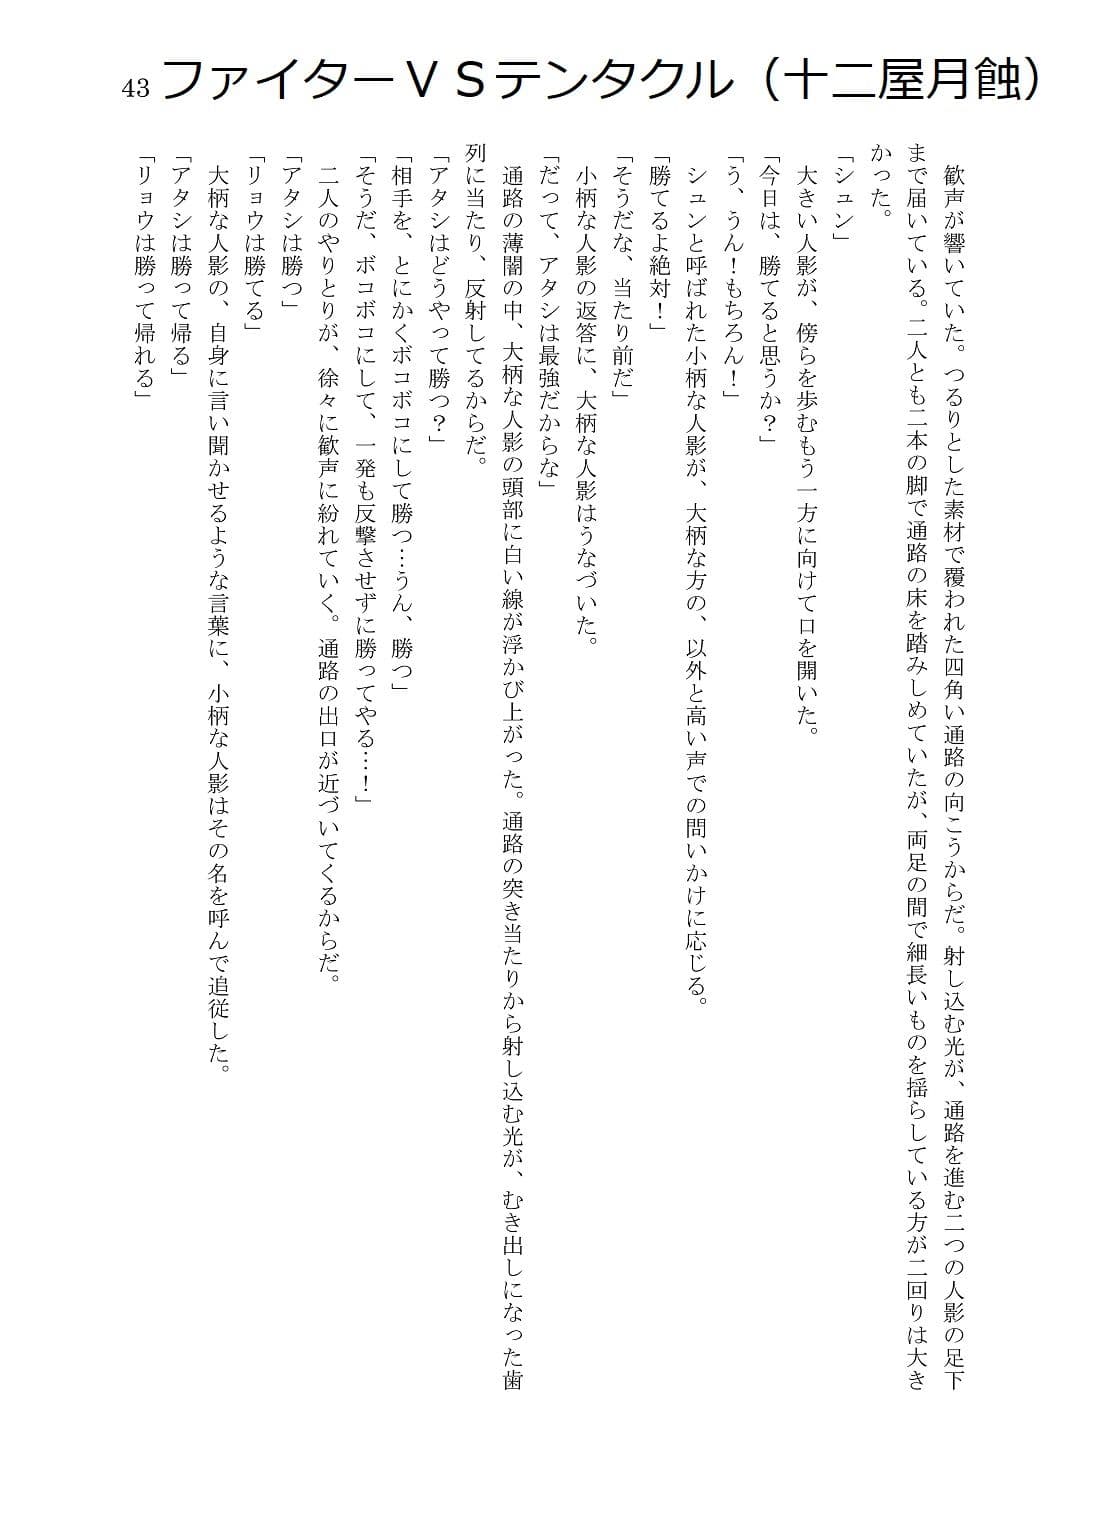 43 ファイターＶＳテンタクル（十二屋月蝕）
　歓声が響いていた。つるりとした素材で覆われた四角い通路の向こうからだ。射し込む光が、通路を進む二つの人影の足下
まで届いている。二人とも二本の脚で通路の床を踏みしめていたが、両足の間で細長いものを揺らしている方が二回りは大き
かった。
「シュン」
　大きい人影が、傍らを歩むもう一方に向けて口を開いた。
「今日は、勝てると思うか？」
「う、うん！もちろん！」
　シュンと呼ばれた小柄な人影が、大柄な方の、以外と高い声での問いかけに応じる。
「勝てるよ絶対！」
「そうだな、当たり前だ」
　小柄な人影の返答に、大柄な人影はうなづいた。
「だって、アタシは最強だからな」
　通路の薄闇の中、大柄な人影の頭部に白い線が浮かび上がった。通路の突き当たりから射し込む光が、むき出しになった歯
列に当たり、反射してるからだ。
「アタシはどうやって勝つ？」
「相手を、とにかくボコボコにして勝つ…うん、勝つ」
「そうだ、ボコボコにして、一発も反撃させずに勝ってやる…！」
　二人のやりとりが、徐々に歓声に紛れていく。通路の出口が近づいてくるからだ。
「アタシは勝つ」
「リョウは勝てる」
　大柄な人影の、自身に言い聞かせるような言葉に、小柄な人影はその名を呼んで追従した。
「アタシは勝って帰る」
「リョウは勝って帰れる」